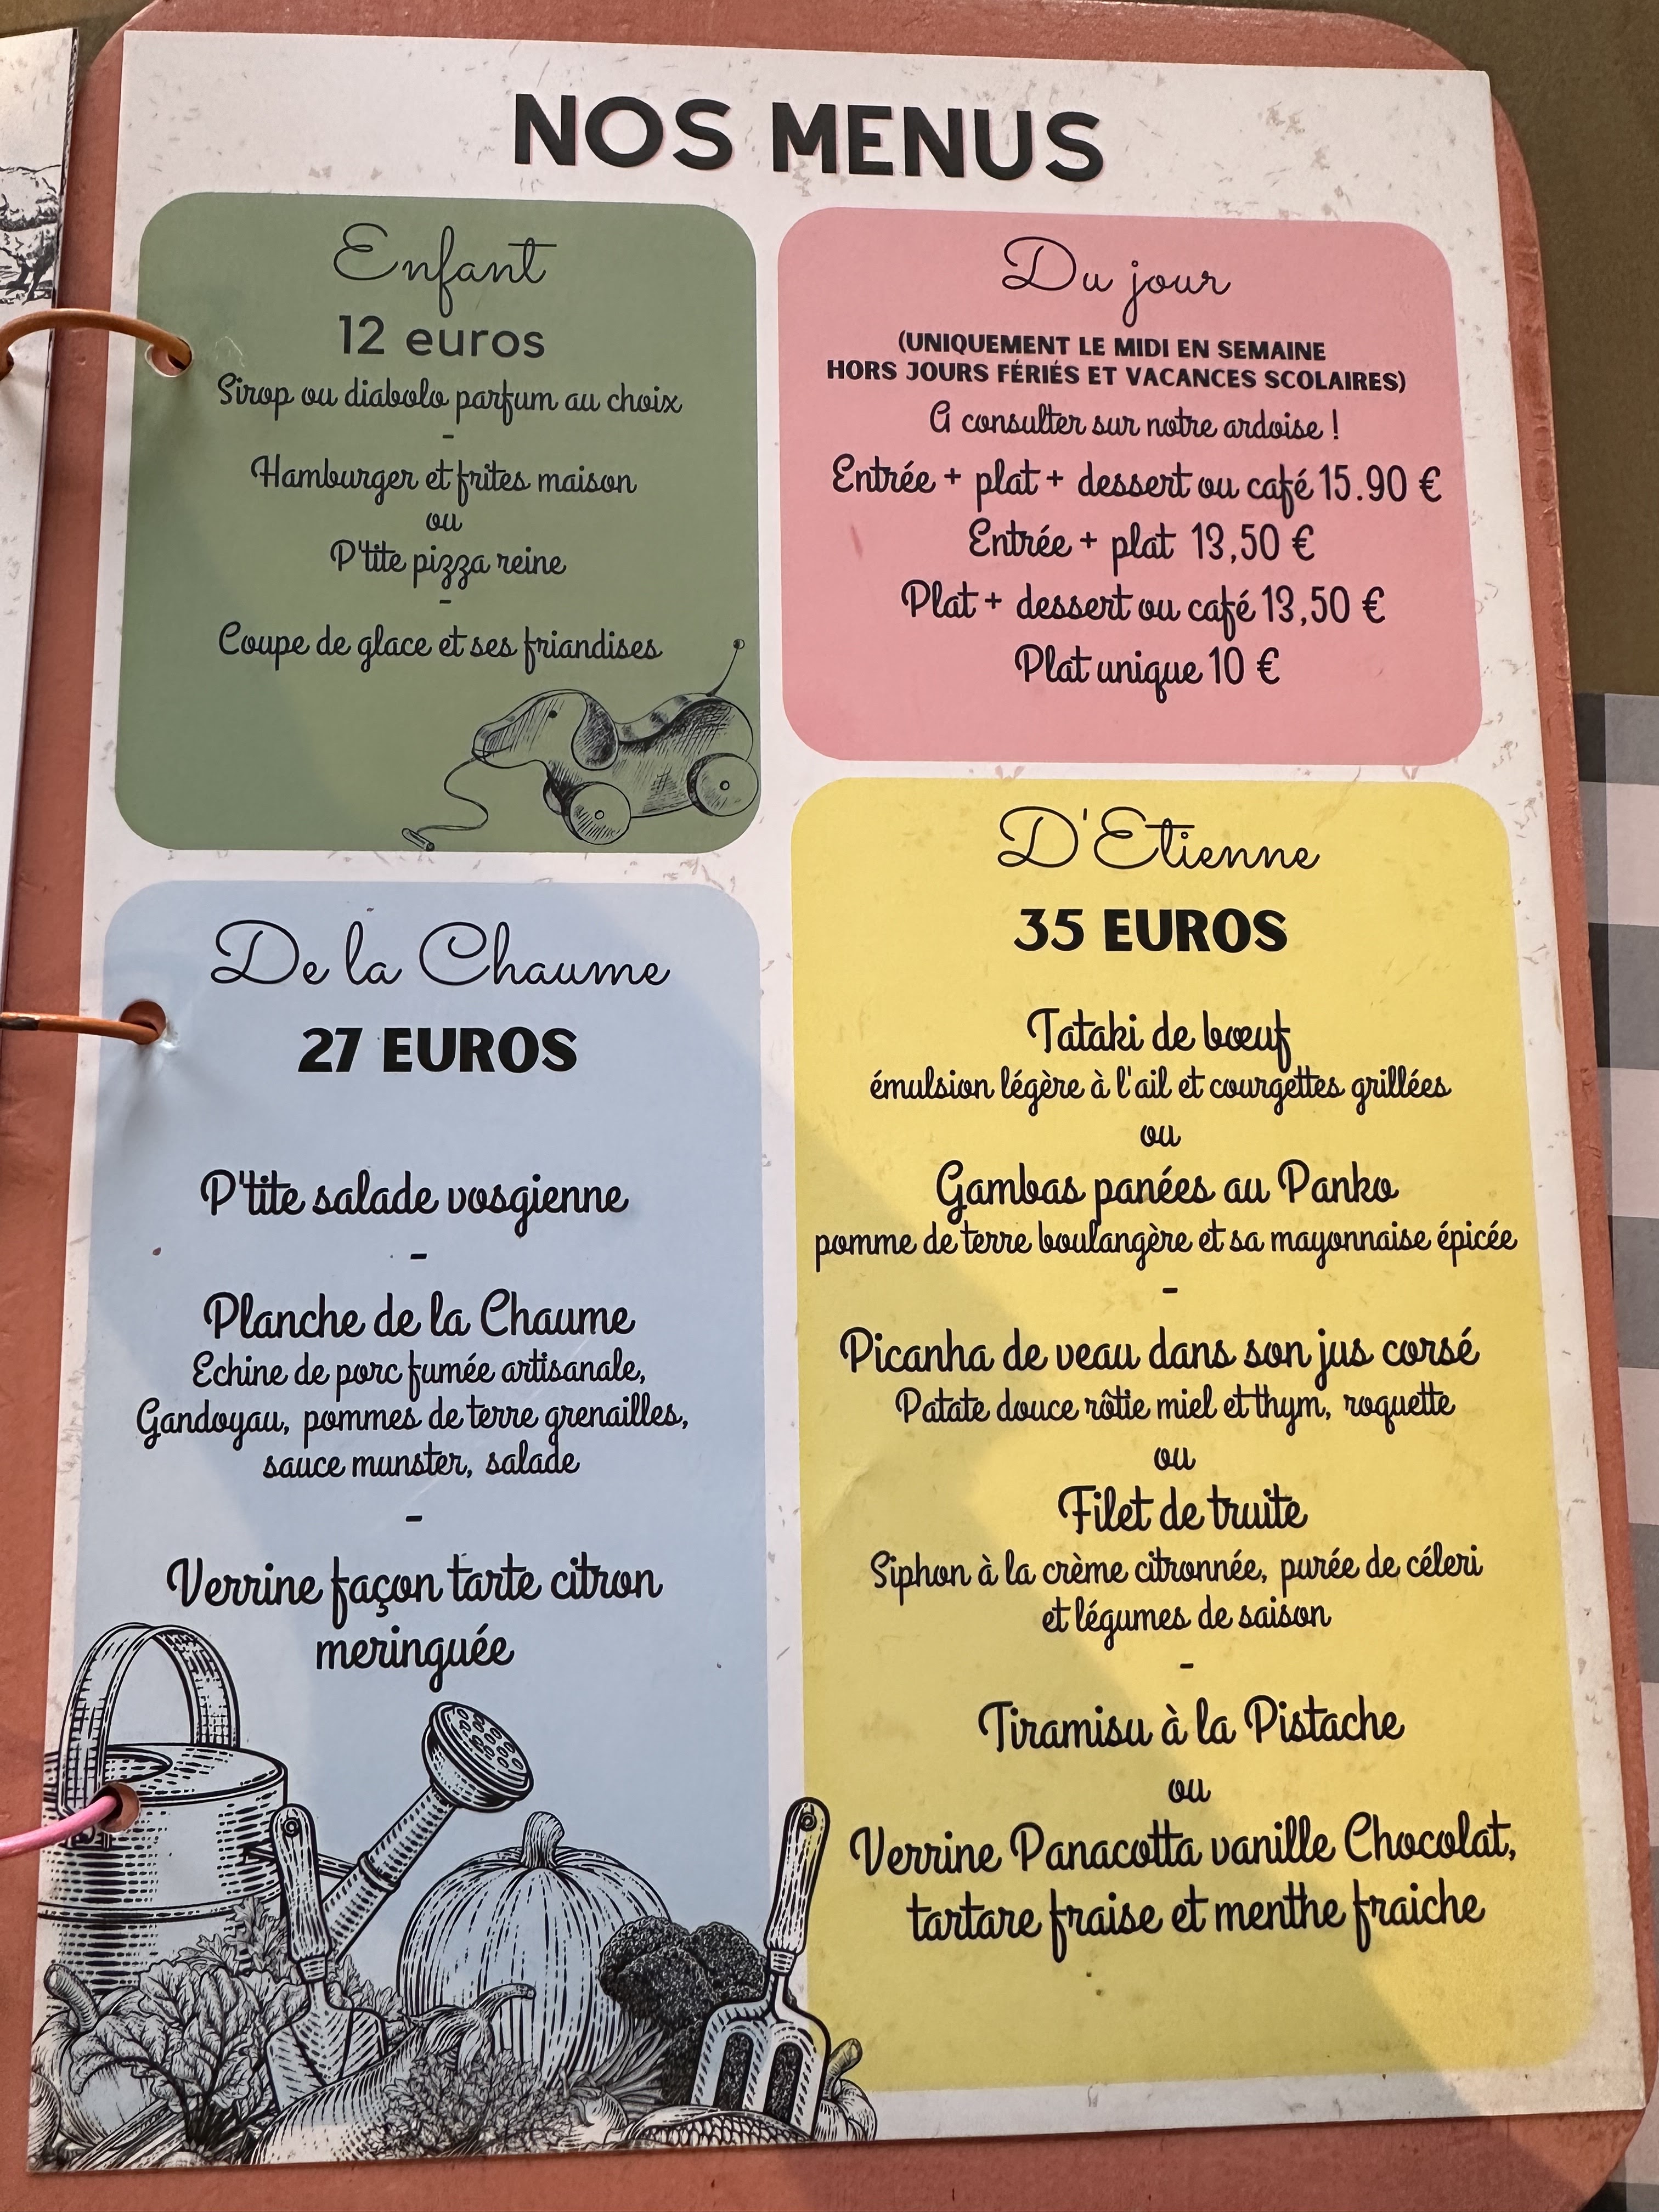 NOS MENUS
Enfant
12 euros
Sirop ou diabolo parfum au choix
-
Hamburger et frites maison
ou
P'tite pizza reine
-
Coupe de glace et ses friandises
Du jour
(UNIQUEMENT LE MIDI EN SEMAINE
HORS JOURS FÉRIÉS ET VACANCES SCOLAIRES)
A consulter sur notre ardoise !
Entrée + plat + dessert ou café 15.90 €
Entrée + plat 13,50 €
Plat + dessert ou café 13,50 €
Plat unique 10 €
De la Chaume
27 EUROS
P'tite salade vosgienne
-
Planche de la Chaume
Echine de porc fumée artisanale,
Gandoyau, pommes de terre grenailles,
sauce munster, salade
-
Verrine façon tarte citron
meringuée
D'Etienne
35 EUROS
Tataki de bœuf
émulsion légère à l'ail et courgettes grillées
ou
Gambas panées au Panko
pomme de terre boulangère et sa mayonnaise épicée
-
Picanha de veau dans son jus corsé
Patate douce rôtie miel et thym, roquette
ou
Filet de truite
Siphon à la crème citronnée, purée de céleri
et légumes de saison
-
Tiramisu à la Pistache
ou
Verrine Panacotta vanille Chocolat,
tartare fraise et menthe fraiche